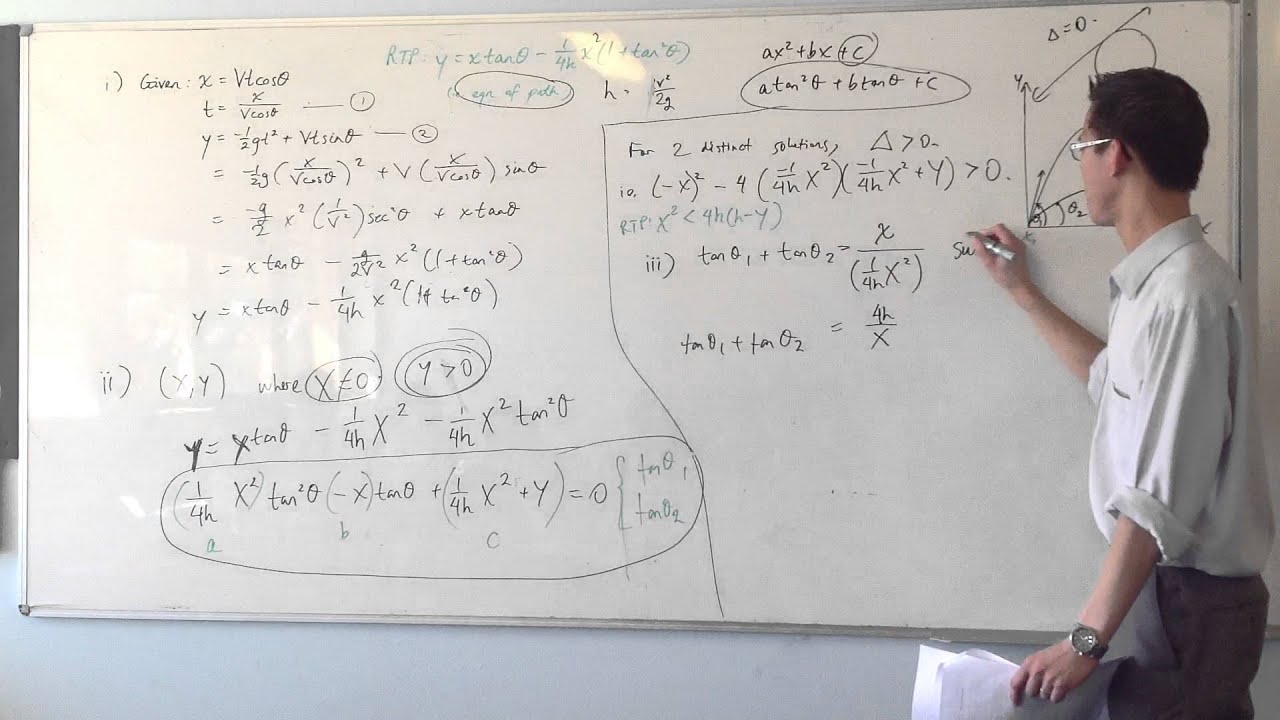 RTP: y = x tanθ − 1/4h x²(1 + tan²θ)
(i.e. eqn of path)
h = V²/2g
i) Given: x = Vtcosθ
t = x/Vcosθ —— ①
y = -1/2gt² + Vtsinθ —— ②
= -1/2g(x/Vcosθ)² + V(x/Vcosθ) sinθ
= -g/2 x²(1/V²)sec²θ + xtanθ
= x tanθ − g/2V² x²(1+tan²θ)
y = x tanθ − 1/4h x²(1+ tan²θ)
ii) (X,Y) where X≠0 Y>0
Y = X tanθ − 1/4h X² − 1/4h X² tan²θ
(1/4h X²) tan²θ (−X) tanθ + (1/4h X² + Y) = 0 { tanθ₁
tanθ₂
a b c
ax² + bx + c
a tan²θ + b tanθ + c
For 2 distinct solutions, Δ > 0.
ie. (−X)² − 4 (-1/4h X²)(-1/4h X² + Y) > 0.
RTP: X² < 4h(h−Y)
iii) tanθ₁ + tanθ₂ = X/(1/4h X²) su
tanθ₁ + tanθ₂ = 4h/X
Δ=0.
Y
θ₂
x